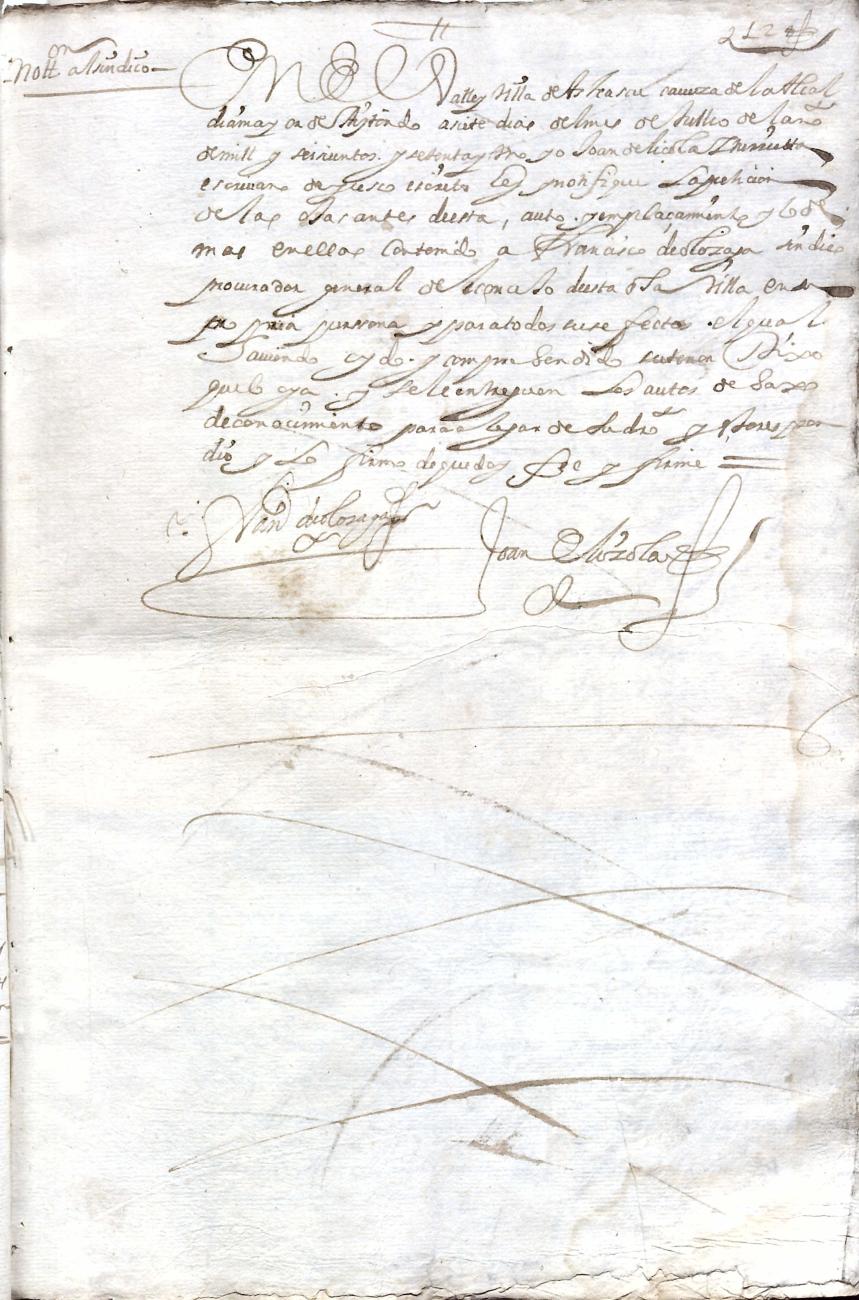 212
Nott.on al sindico
En El Valle y Villa de Asteasu caveza de la Alcal
dia mayor de Ayztondo a siete dias del mes de Jullio de l año
de mill y seiscientos y setenta y tres yo Joan de licola Yturriotta
escrivano de yuso escrito ley y notifique la peticion
de las ojas antes desta, auto y emplaçamiento y lo de
mas en ellas contenido a Francisco de olozaga sindico
procurador general de el conzejo desta dha Villa en su
propria perssona y para todos sus efectos el qual
haviendo oydo y comprehendido su tenor Dixo
que lo oya y se le entreguen los autos de
de conocimiento para alegar de su dro y esto respon
dio y lo firmo de que doy fee y firme
Fran.co de olozaga
Joan Elizola